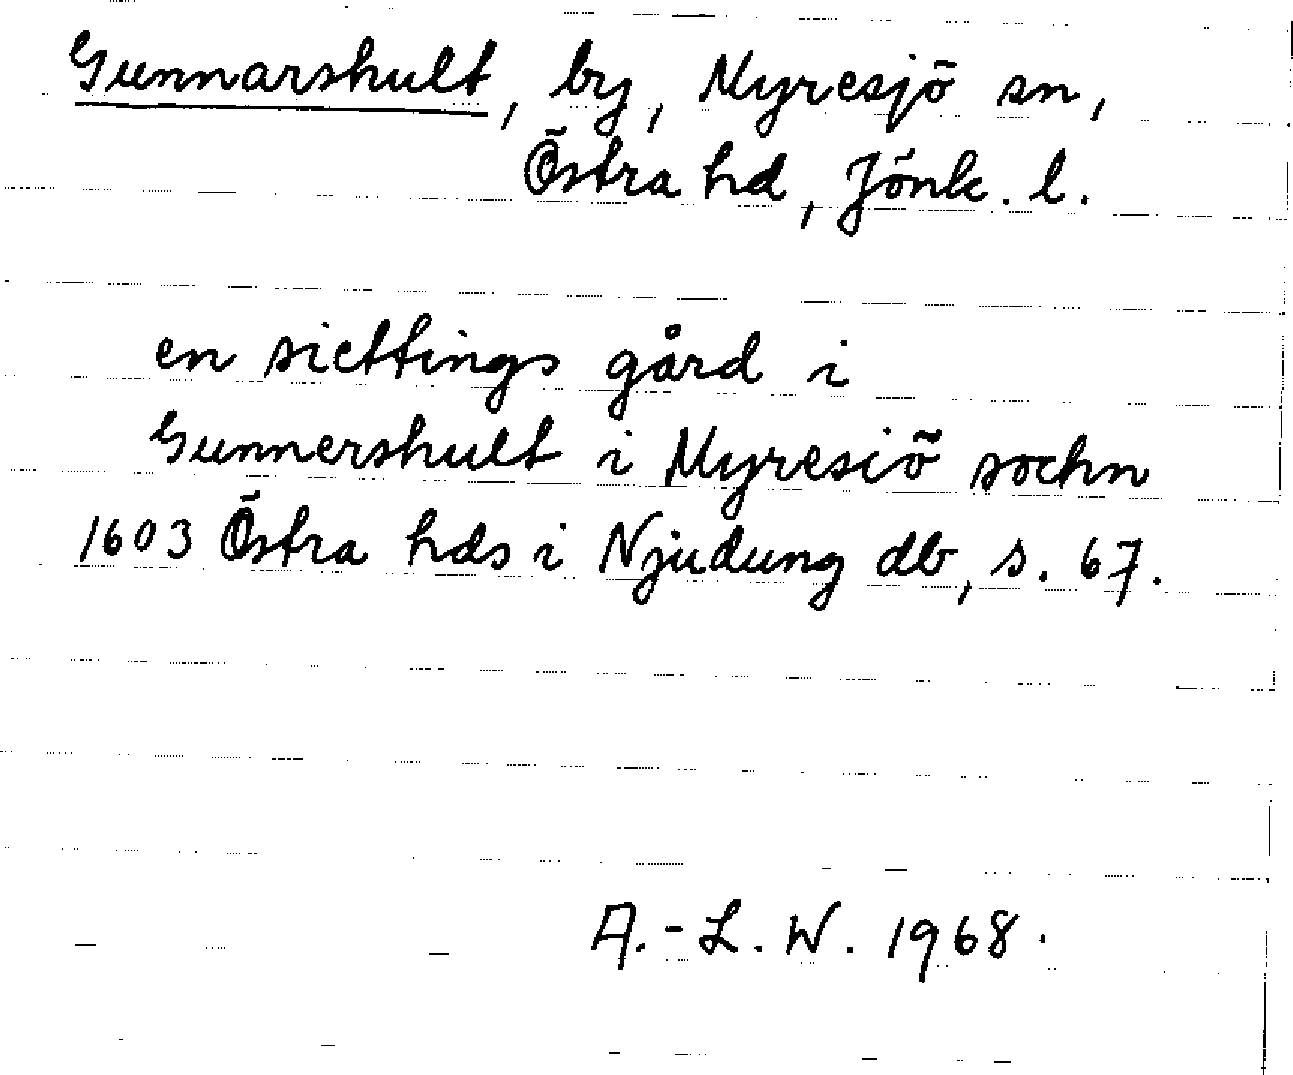 Gunnarshult, by, Myresjö sn,
Östra hd, Jönk. l.
en siettings gård i
Gunnershult i Myresiö sochn
1603 Östra hds i Njudung db, s. 67.
A.-L. W. 1968.